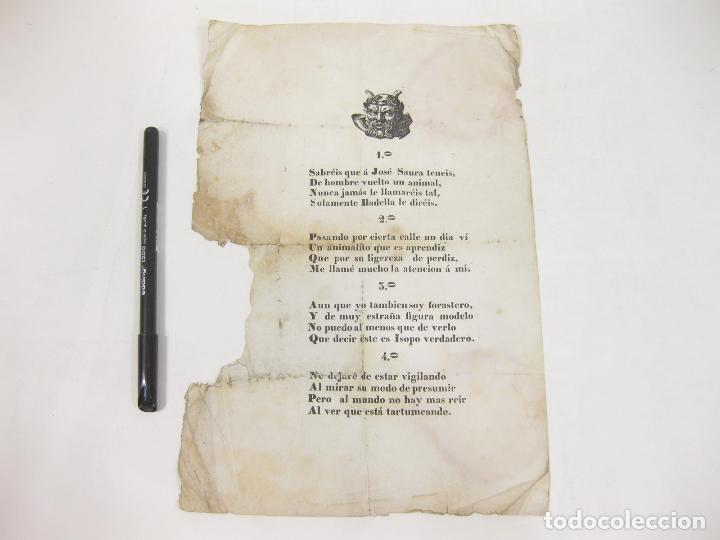 1.º
Sabréis que á José Saura teneis,
De hombre vuelto un animal,
Nunca jamás le llamaréis tal,
Solamente Badella le diréis.
2.º
Pasando por cierta calle un dia ví
Un animalito que es aprendiz
Que por su ligereza de perdiz,
Me llamé mucho la atencion á mi.
3.º
Aun que yo tambien soy forastero,
Y de muy estraña figura modelo
No puedo al menos que de verlo
Que decir este es Isopo verdadero.
4.º
No dejaré de estar vigilando
Al mirar su modo de presumir
Pero al mundo no hay mas reir
Al ver que está tartumeando.
edding 1200
todocoleccion